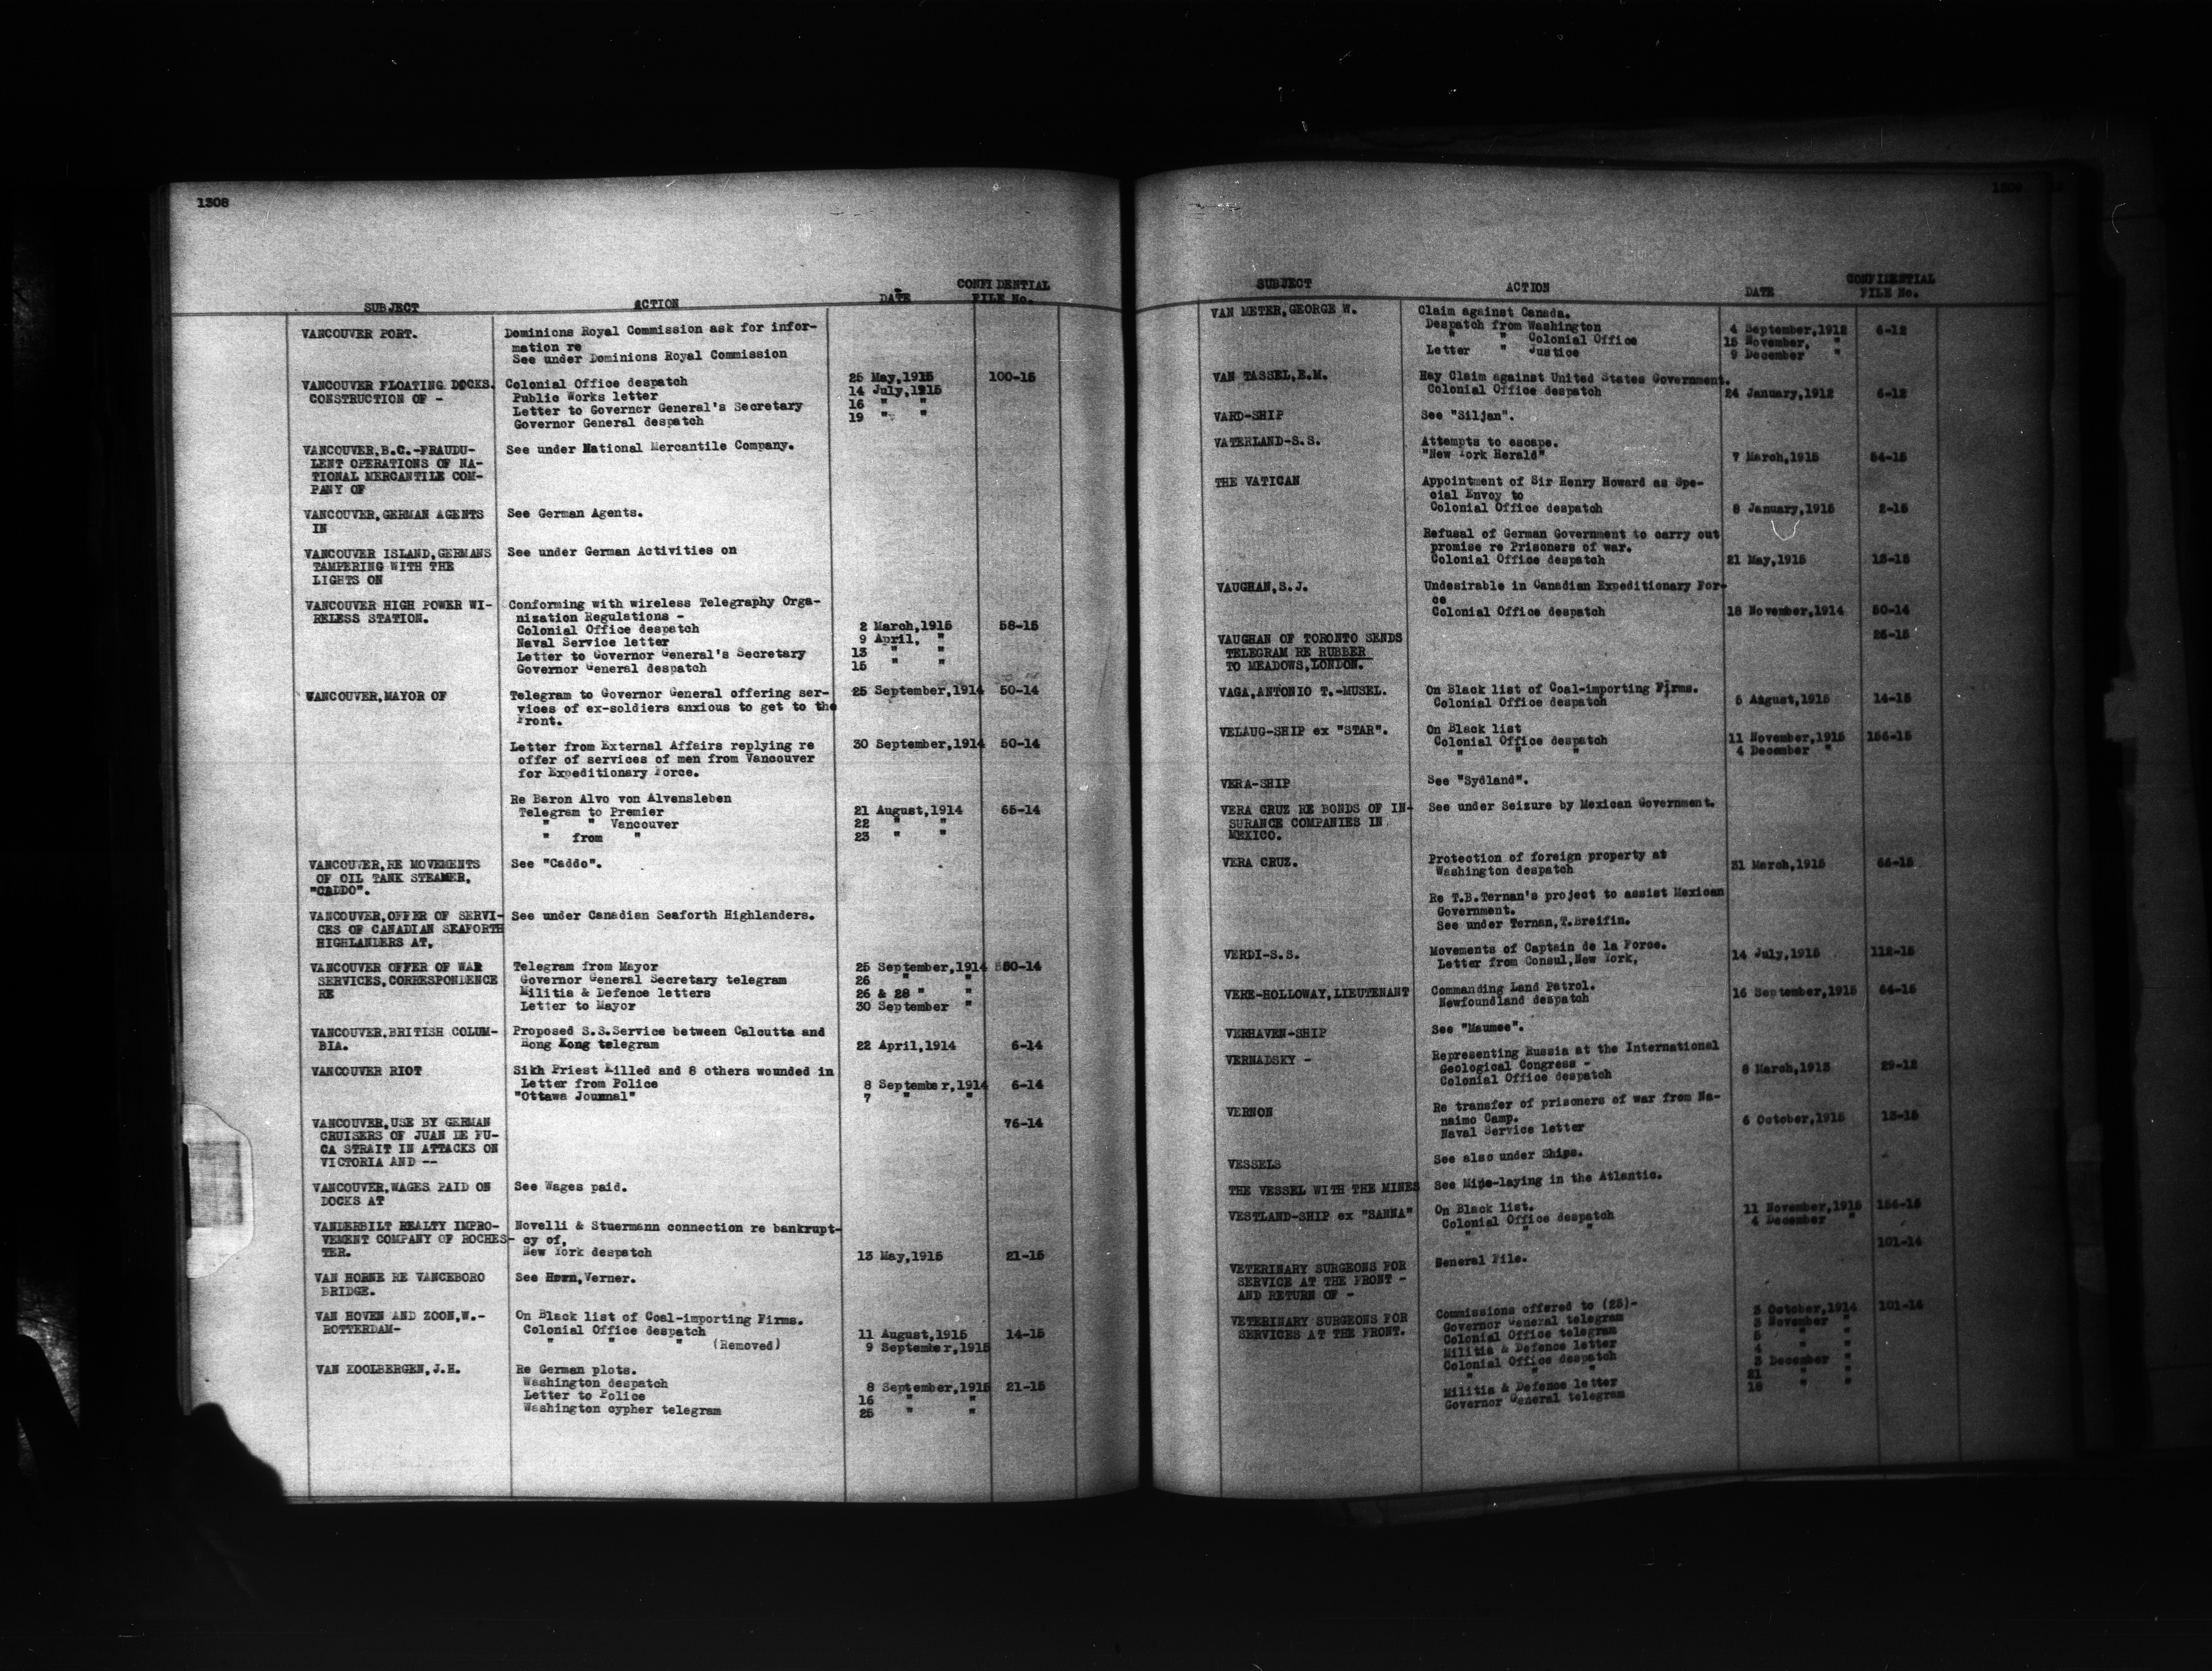 1308
SUBJECT ACTION DATE CONFIDENTIAL FILE No.
VANCOUVER PORT. Dominions Royal Commission ask for infor-
mation re
See under Dominions Royal Commission
VANCOUVER FLOATING DOCKS. Colonial Office despatch 25 May,1915 100-15
CONSTRUCTION OF - Public Works letter 14 July,1915
Letter to Governor General's Secretary 16 " "
Governor General despatch 19 " "
VANCOUVER,B.C.-FRAUDU- See under National Mercantile Company.
LENT OPERATIONS OF NA-
TIONAL MERCANTILE COM-
PANY OF
VANCOUVER,GERMAN AGENTS See German Agents.
IN
VANCOUVER ISLAND,GERMANS See under German Activities on
TAMPERING WITH THE
LIGHTS ON
VANCOUVER HIGH POWER WI- Conforming with wireless Telegraphy Orga-
RELESS STATION. nization Regulations -
Colonial Office despatch 2 March,1915 58-15
Naval Service letter 9 April, "
Letter to Governor General's Secretary 13 " "
Governor General despatch 15 " "
VANCOUVER,MAYOR OF Telegram to Governor General offering ser- 25 September,1914 50-14
vices of ex-soldiers anxious to get to the
Front.
Letter from External Affairs replying re 30 September,1914 50-14
offer of services of men from Vancouver
for Expeditionary Force.
Re Baron Alvo von Alvensleben
Telegram to Premier 21 August,1914 65-14
" " Vancouver 22 " "
" from " 23 " "
VANCOUVER,RE MOVEMENTS See "Caddo".
OF OIL TANK STEAMER,
"CADDO".
VANCOUVER,OFFER OF SERVI- See under Canadian Seaforth Highlanders.
CES OF CANADIAN SEAFORTH
HIGHLANDERS AT,
VANCOUVER OFFER OF WAR Telegram from Mayor 25 September,1914 50-14
SERVICES,CORRESPONDENCE Governor General Secretary telegram 26 " "
RE Militia & Defence letters 26 & 28 " "
Letter to Mayor 30 September "
VANCOUVER,BRITISH COLUM- Proposed S.S.Service between Calcutta and
BIA. Hong Kong telegram 22 April,1914 6-14
VANCOUVER RIOT Sikh Priest killed and 8 others wounded in
Letter from Police 8 September,1914 6-14
"Ottawa Journal" 7 " "
VANCOUVER,USE BY GERMAN 76-14
CRUISERS OF JUAN DE FU-
CA STRAIT IN ATTACKS ON
VICTORIA AND --
VANCOUVER,WAGES PAID ON See Wages paid.
DOCKS AT
VANDERBILT REALTY IMPRO- Novelli & Stuermann connection re bankrupt-
VEMENT COMPANY OF ROCHES- cy of,
TER. New York despatch 13 May,1915 21-15
VAN HORNE RE VANCEBORO See Horn,Verner.
BRIDGE.
VAN HOVEN AND ZOON,W.- On Black list of Coal-importing Firms.
ROTTERDAM- Colonial Office despatch 11 August,1915 14-15
" " " (Removed) 9 September,1915
VAN KOOLBERGEN,J.H. Re German plots.
Washington despatch 8 September,1915 21-15
Letter to Police 16 " "
Washington cypher telegram 25 " "
SUBJECT ACTION DATE CONFIDENTIAL FILE No.
VAN METER,GEORGE W. Claim against Canada.
Despatch from Washington 4 September,1912 6-12
" Colonial Office 15 November, "
Letter " Justice 9 December "
VAN TASSEL,E.M. Hay Claim against United States Government.
Colonial Office despatch 24 January,1912 6-12
VARD-SHIP See "Siljan".
VATERLAND-S.S. Attempts to escape.
"New York Herald" 7 March,1915 54-15
THE VATICAN Appointment of Sir Henry Howard as Spe-
cial Envoy to
Colonial Office despatch 8 January,1915 2-15
Refusal of German Government to carry out
promise re Prisoners of war.
Colonial Office despatch 21 May,1915 13-15
VAUGHAN,S.J. Undesirable in Canadian Expeditionary For-
ce
Colonial Office despatch 18 November,1914 50-14
VAUGHAN OF TORONTO SENDS 25-15
TELEGRAM RE RUBBER
TO MEADOWS,LONDON.
VAGA,ANTONIO T.-MUSEL. On Black list of Coal-importing Firms.
Colonial Office despatch 5 August,1915 14-15
VELAUG-SHIP ex "STAR". On Black list
Colonial Office despatch 11 November,1915 156-15
" " " 4 December "
VERA-SHIP See "Sydland".
VERA CRUZ RE BONDS OF IN- See under Seizure by Mexican Government.
SURANCE COMPANIES IN
MEXICO.
VERA CRUZ. Protection of foreign property at
Washington despatch 31 March,1915 66-15
Re T.B.Ternan's project to assist Mexican
Government.
See under Ternan,T.Breifin.
VERDI-S.S. Movements of Captain de la Force.
Letter from Consul,New York, 14 July,1915 112-15
VERE-HOLLOWAY,LIEUTENANT Commanding Land Patrol.
Newfoundland despatch 16 September,1915 64-15
VERHAVEN-SHIP See "Maumee".
VERNADSKY - Representing Russia at the International
Geological Congress -
Colonial Office despatch 8 March,1913 29-12
VERNON Re transfer of prisoners of war from Na-
naimo Camp.
Naval Service letter 6 October,1915 13-15
VESSELS See also under Ships.
THE VESSEL WITH THE MINES See Mine-laying in the Atlantic.
VESTLAND-SHIP ex "SANNA" On Black list.
Colonial Office despatch 11 November,1915 156-15
" " " 4 December "
VETERINARY SURGEONS FOR General File. 101-14
SERVICE AT THE FRONT -
AND RETURN OF -
VETERINARY SURGEONS FOR Commissions offered to (25)- 
SERVICES AT THE FRONT. Governor General telegram 3 October,1914 101-14
Colonial Office telegram 3 November "
Militia & Defence letter 5 " "
Colonial Office despatch 4 " "
" " " 3 December "
21 " "
Militia & Defence letter 18 " "
Governor General telegram